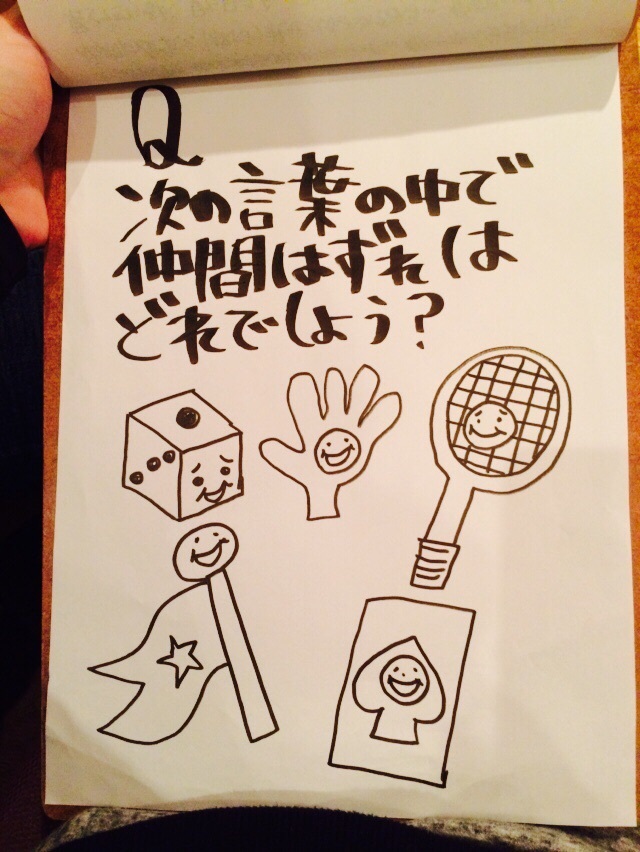 Q
次の言葉の中で
仲間はずれは
どれでしょう?